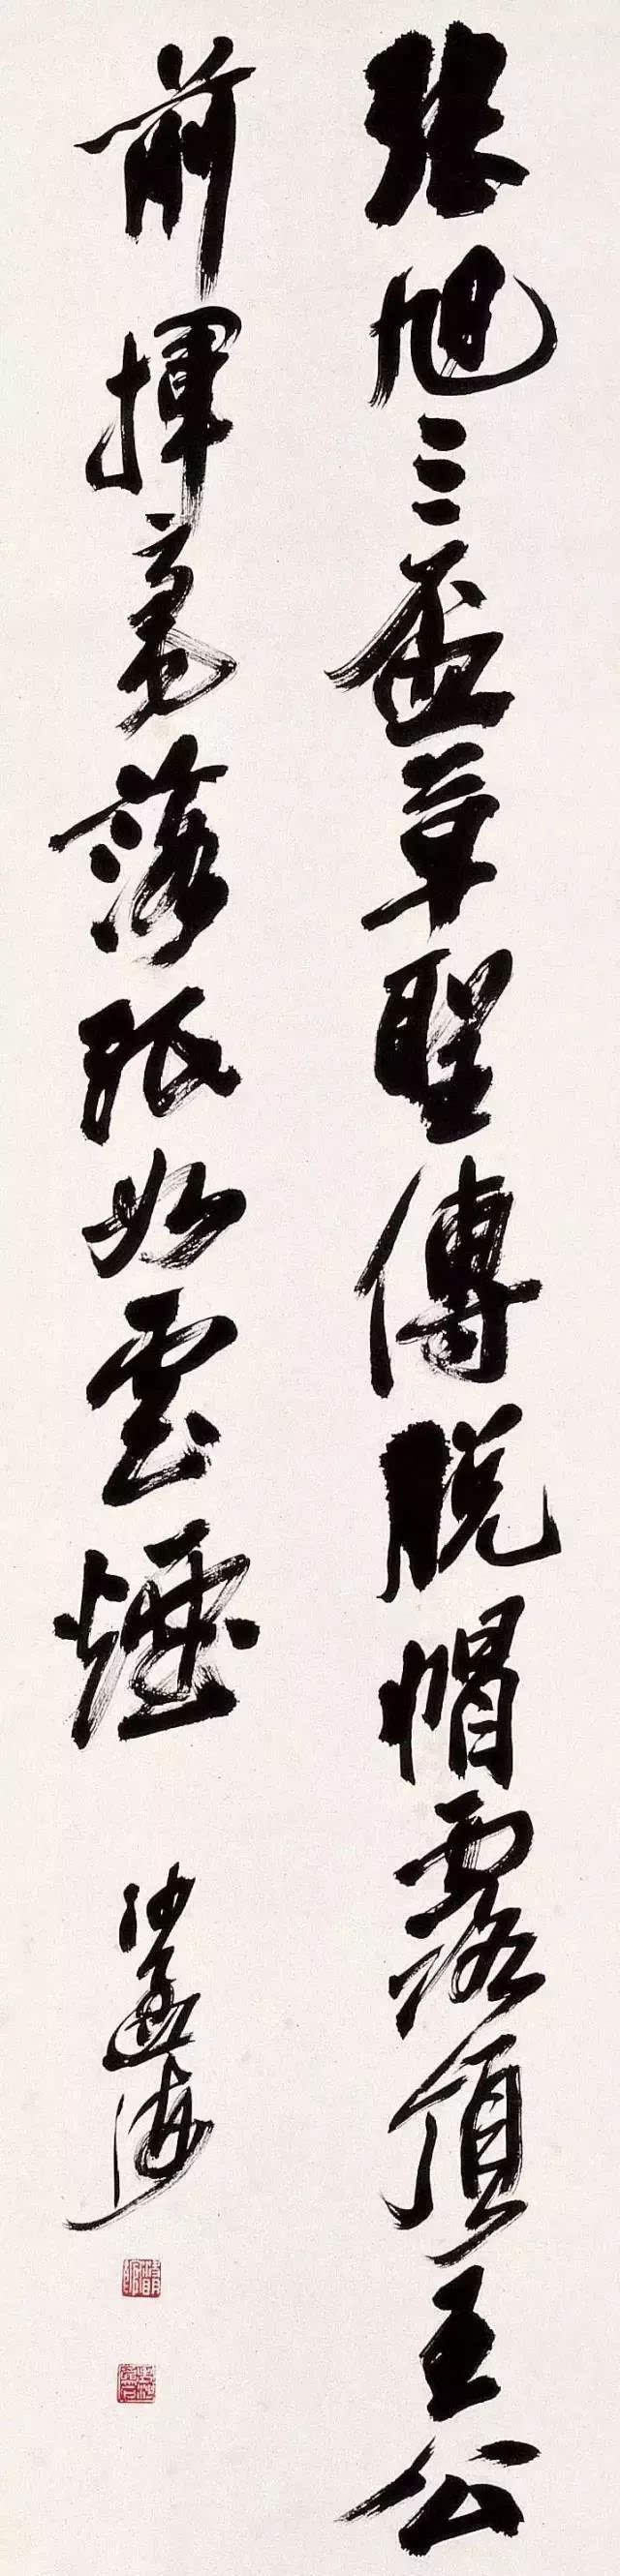 張旭三盃草聖傳脱帽露頂王公
前揮毫落紙如雲煙
沙孟海